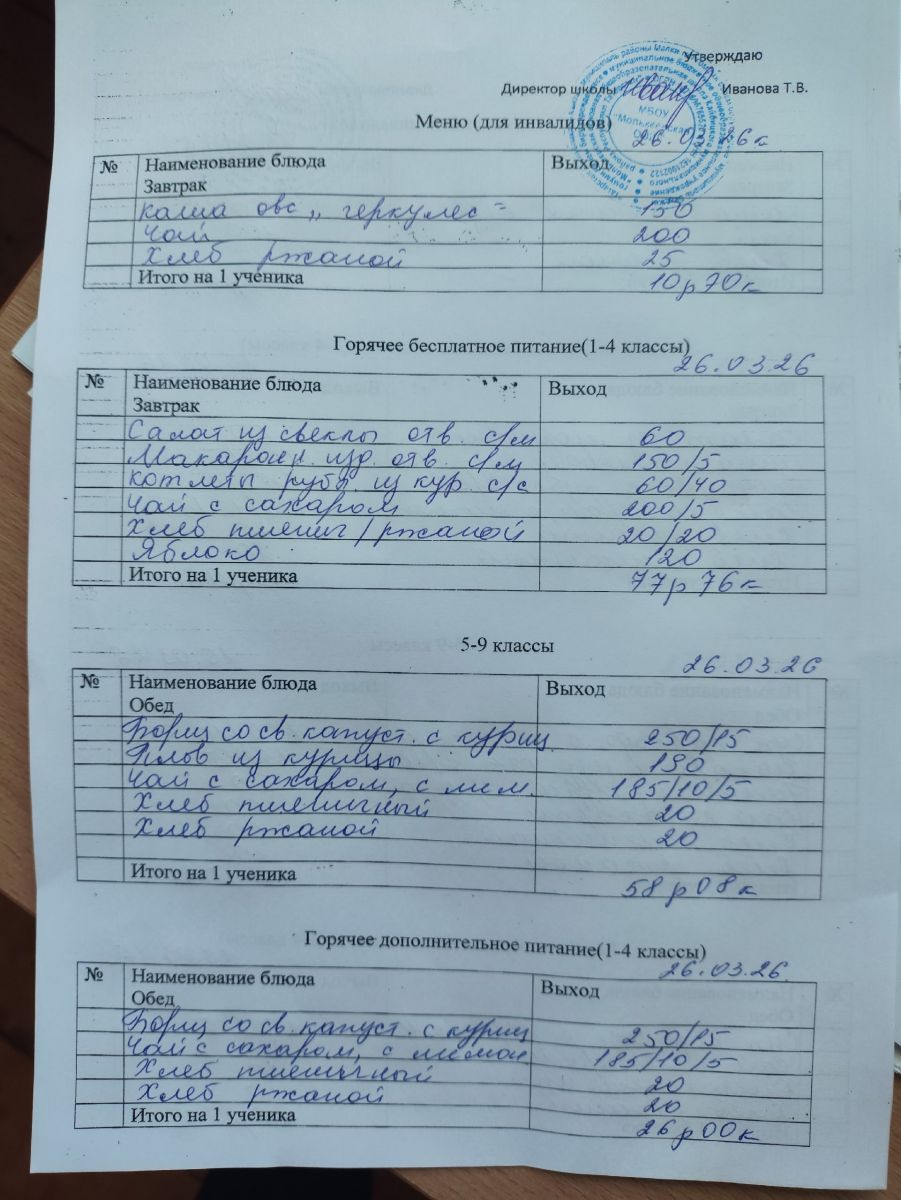 Утверждаю
Директор школы Иванова Т.В.
Меню (для инвалидов)
26.03.26г
№ Наименование блюда Выход
Завтрак
Каша овс „геркулес" 150
Чай 200
Хлеб ржаной 25
Итого на 1 ученика 10р70к
Горячее бесплатное питание(1-4 классы)
26.03.26
№ Наименование блюда Выход
Завтрак
Салат из свеклы отв. с/м 60
Макарон. изд. отв. с/м 150/5
Котлеты руб. из кур с/с 60/40
Чай с сахаром 200/5
Хлеб пшенич/ржаной 20/20
Яблоко 120
Итого на 1 ученика 77р76к
5-9 классы
26.03.26
№ Наименование блюда Выход
Обед
Борщ со св. капуст. с куриц 250/15
Плов из курицы 190
Чай с сахаром, с лим. 185/10/5
Хлеб пшеничный 20
Хлеб ржаной 20
Итого на 1 ученика 58р08к
Горячее дополнительное питание(1-4 классы)
26.03.26
№ Наименование блюда Выход
Обед
Борщ со св. капуст. с куриц 250/15
Чай с сахаром, с лимон 185/10/5
Хлеб пшеничный 20
Хлеб ржаной 20
Итого на 1 ученика 26р00к